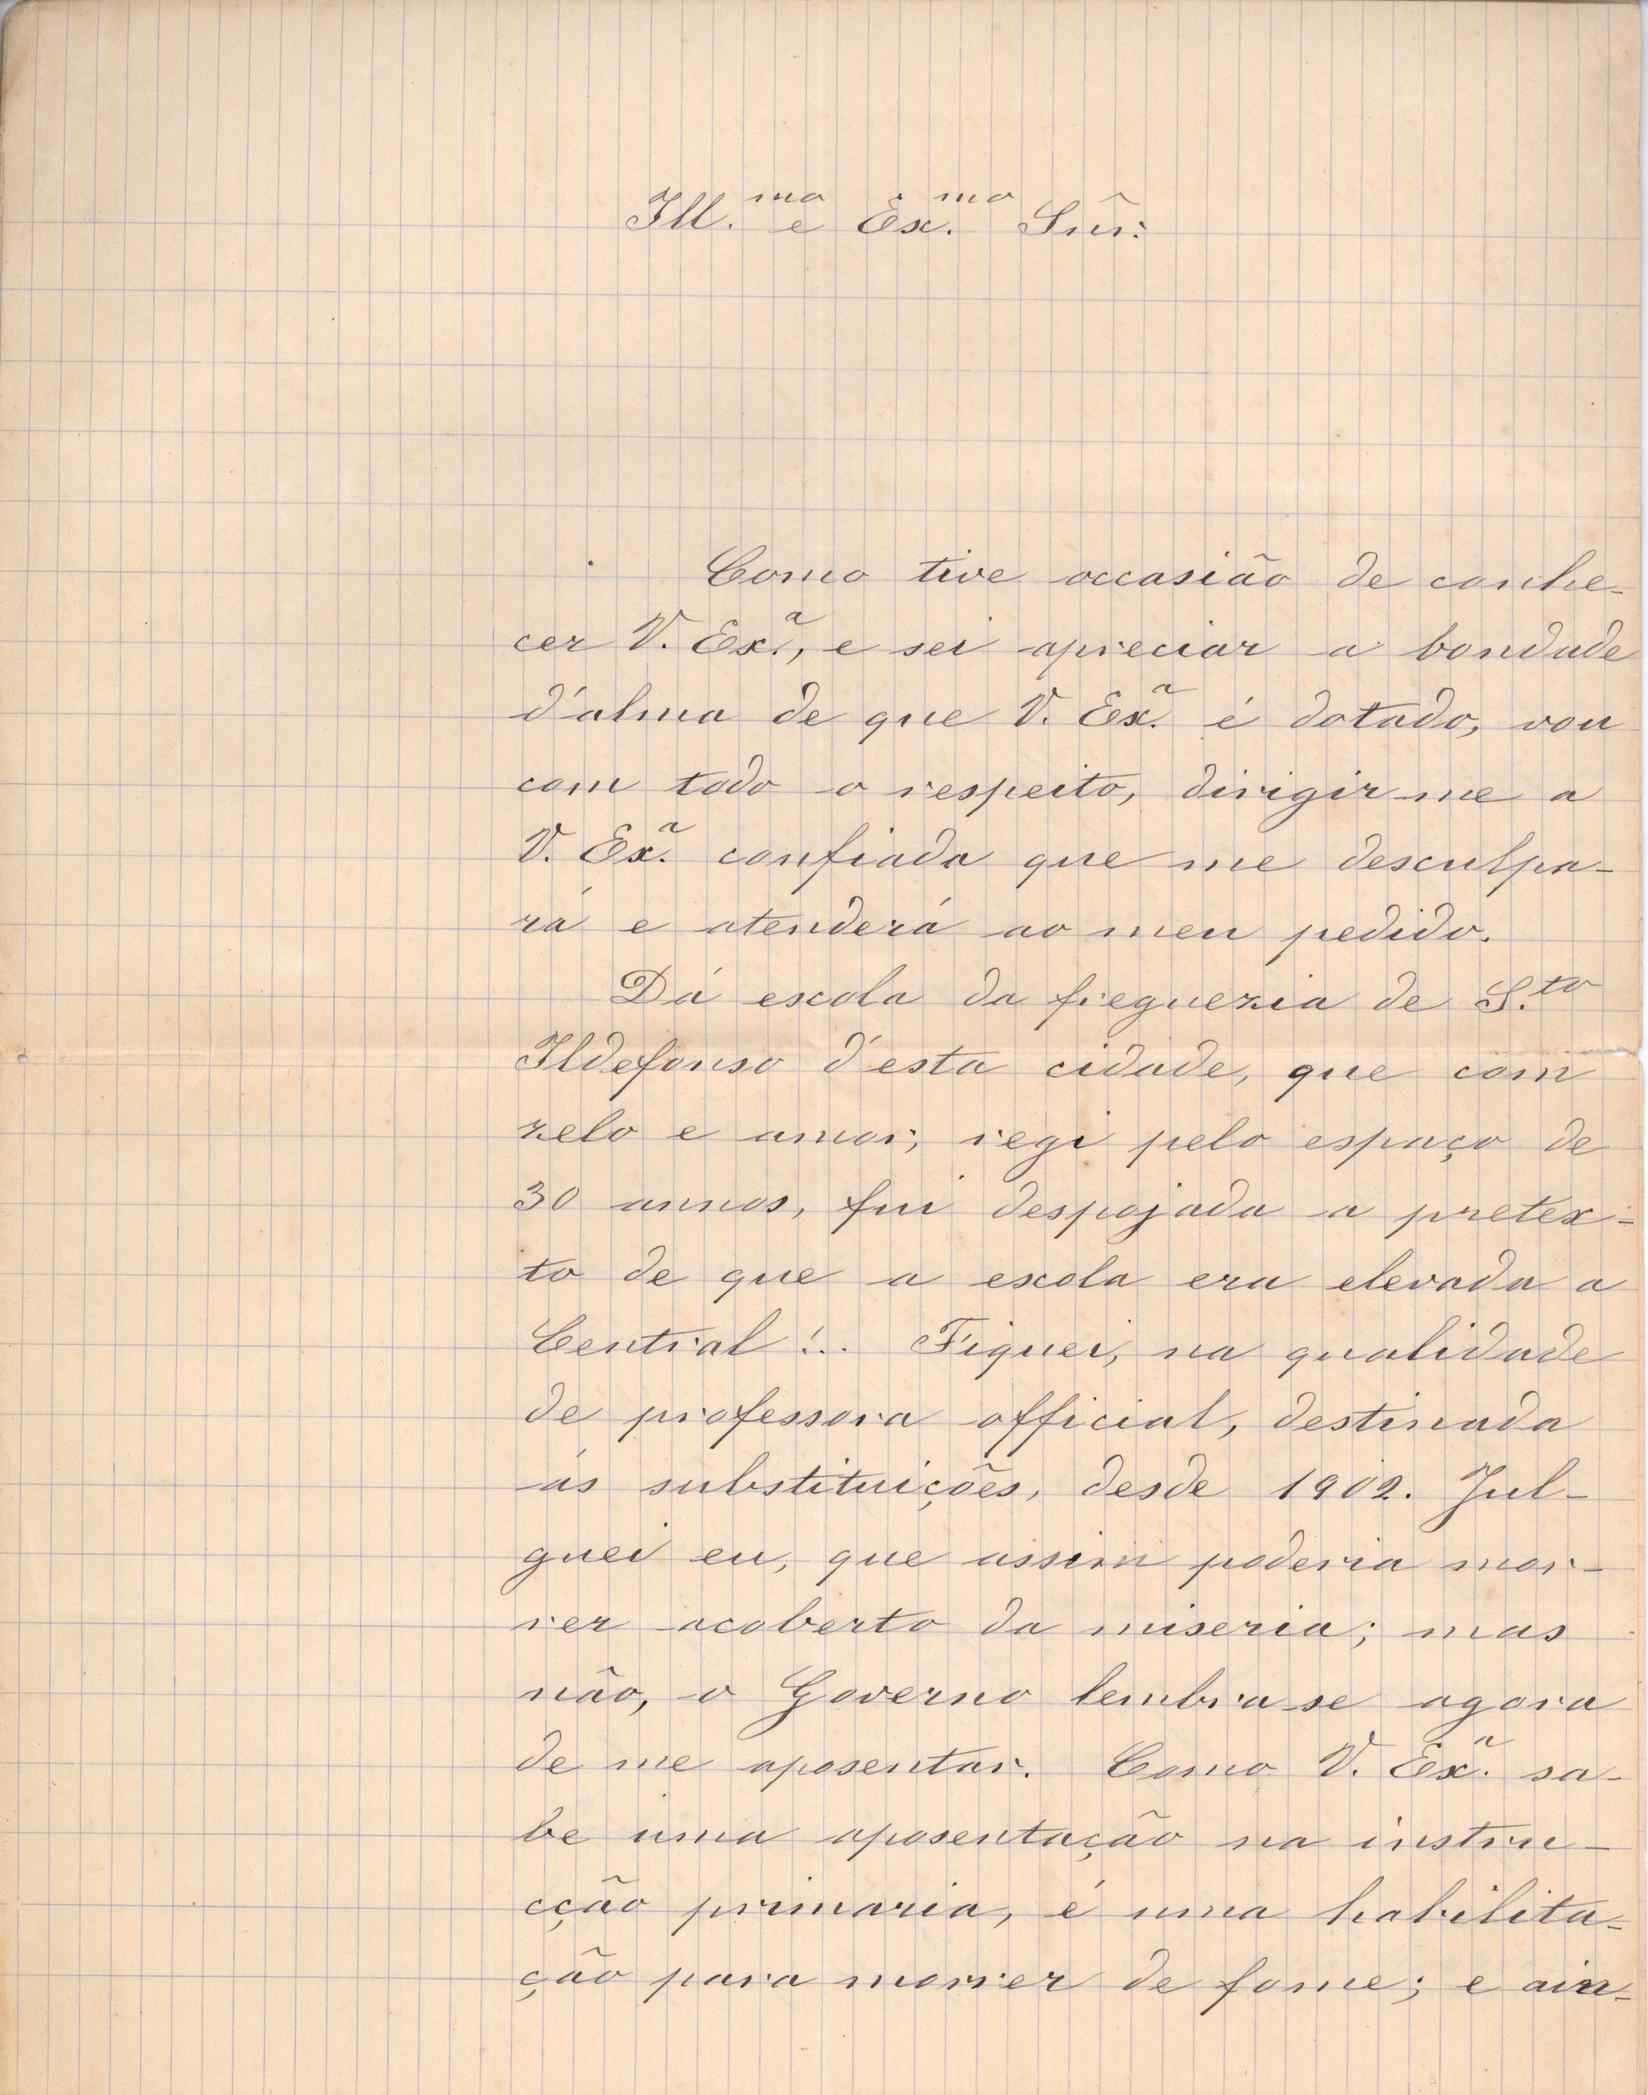 Ill.mo e Ex.mo Snr:
Como tive occasião de conhe-
cer V. Ex.ª, e sei apreciar a bondade
d'alma de que V. Ex.ª é dotado, vou
com todo o respeito, dirigir-me a
V. Ex.ª confiada que me desculpa-
rá e atenderá ao meu pedido.
Da escola da freguezia de S.to
Ildefonso d'esta cidade, que com
zelo e amor, regi pelo espaço de
30 annos, fui despojada a pretex-
to de que a escola era elevada a
Central!.. Fiquei, na qualidade
de professora official, destinada
ás substituições, desde 1902. Jul-
guei eu, que assim poderia mor-
rer acoberto da miseria; mas
não, o Governo lembra-se agora
de me aposentar. Como V. Ex.ª sa-
be uma aposentação na instru-
cção primaria, é uma habilita-
ção para morrer de fome; e ain-